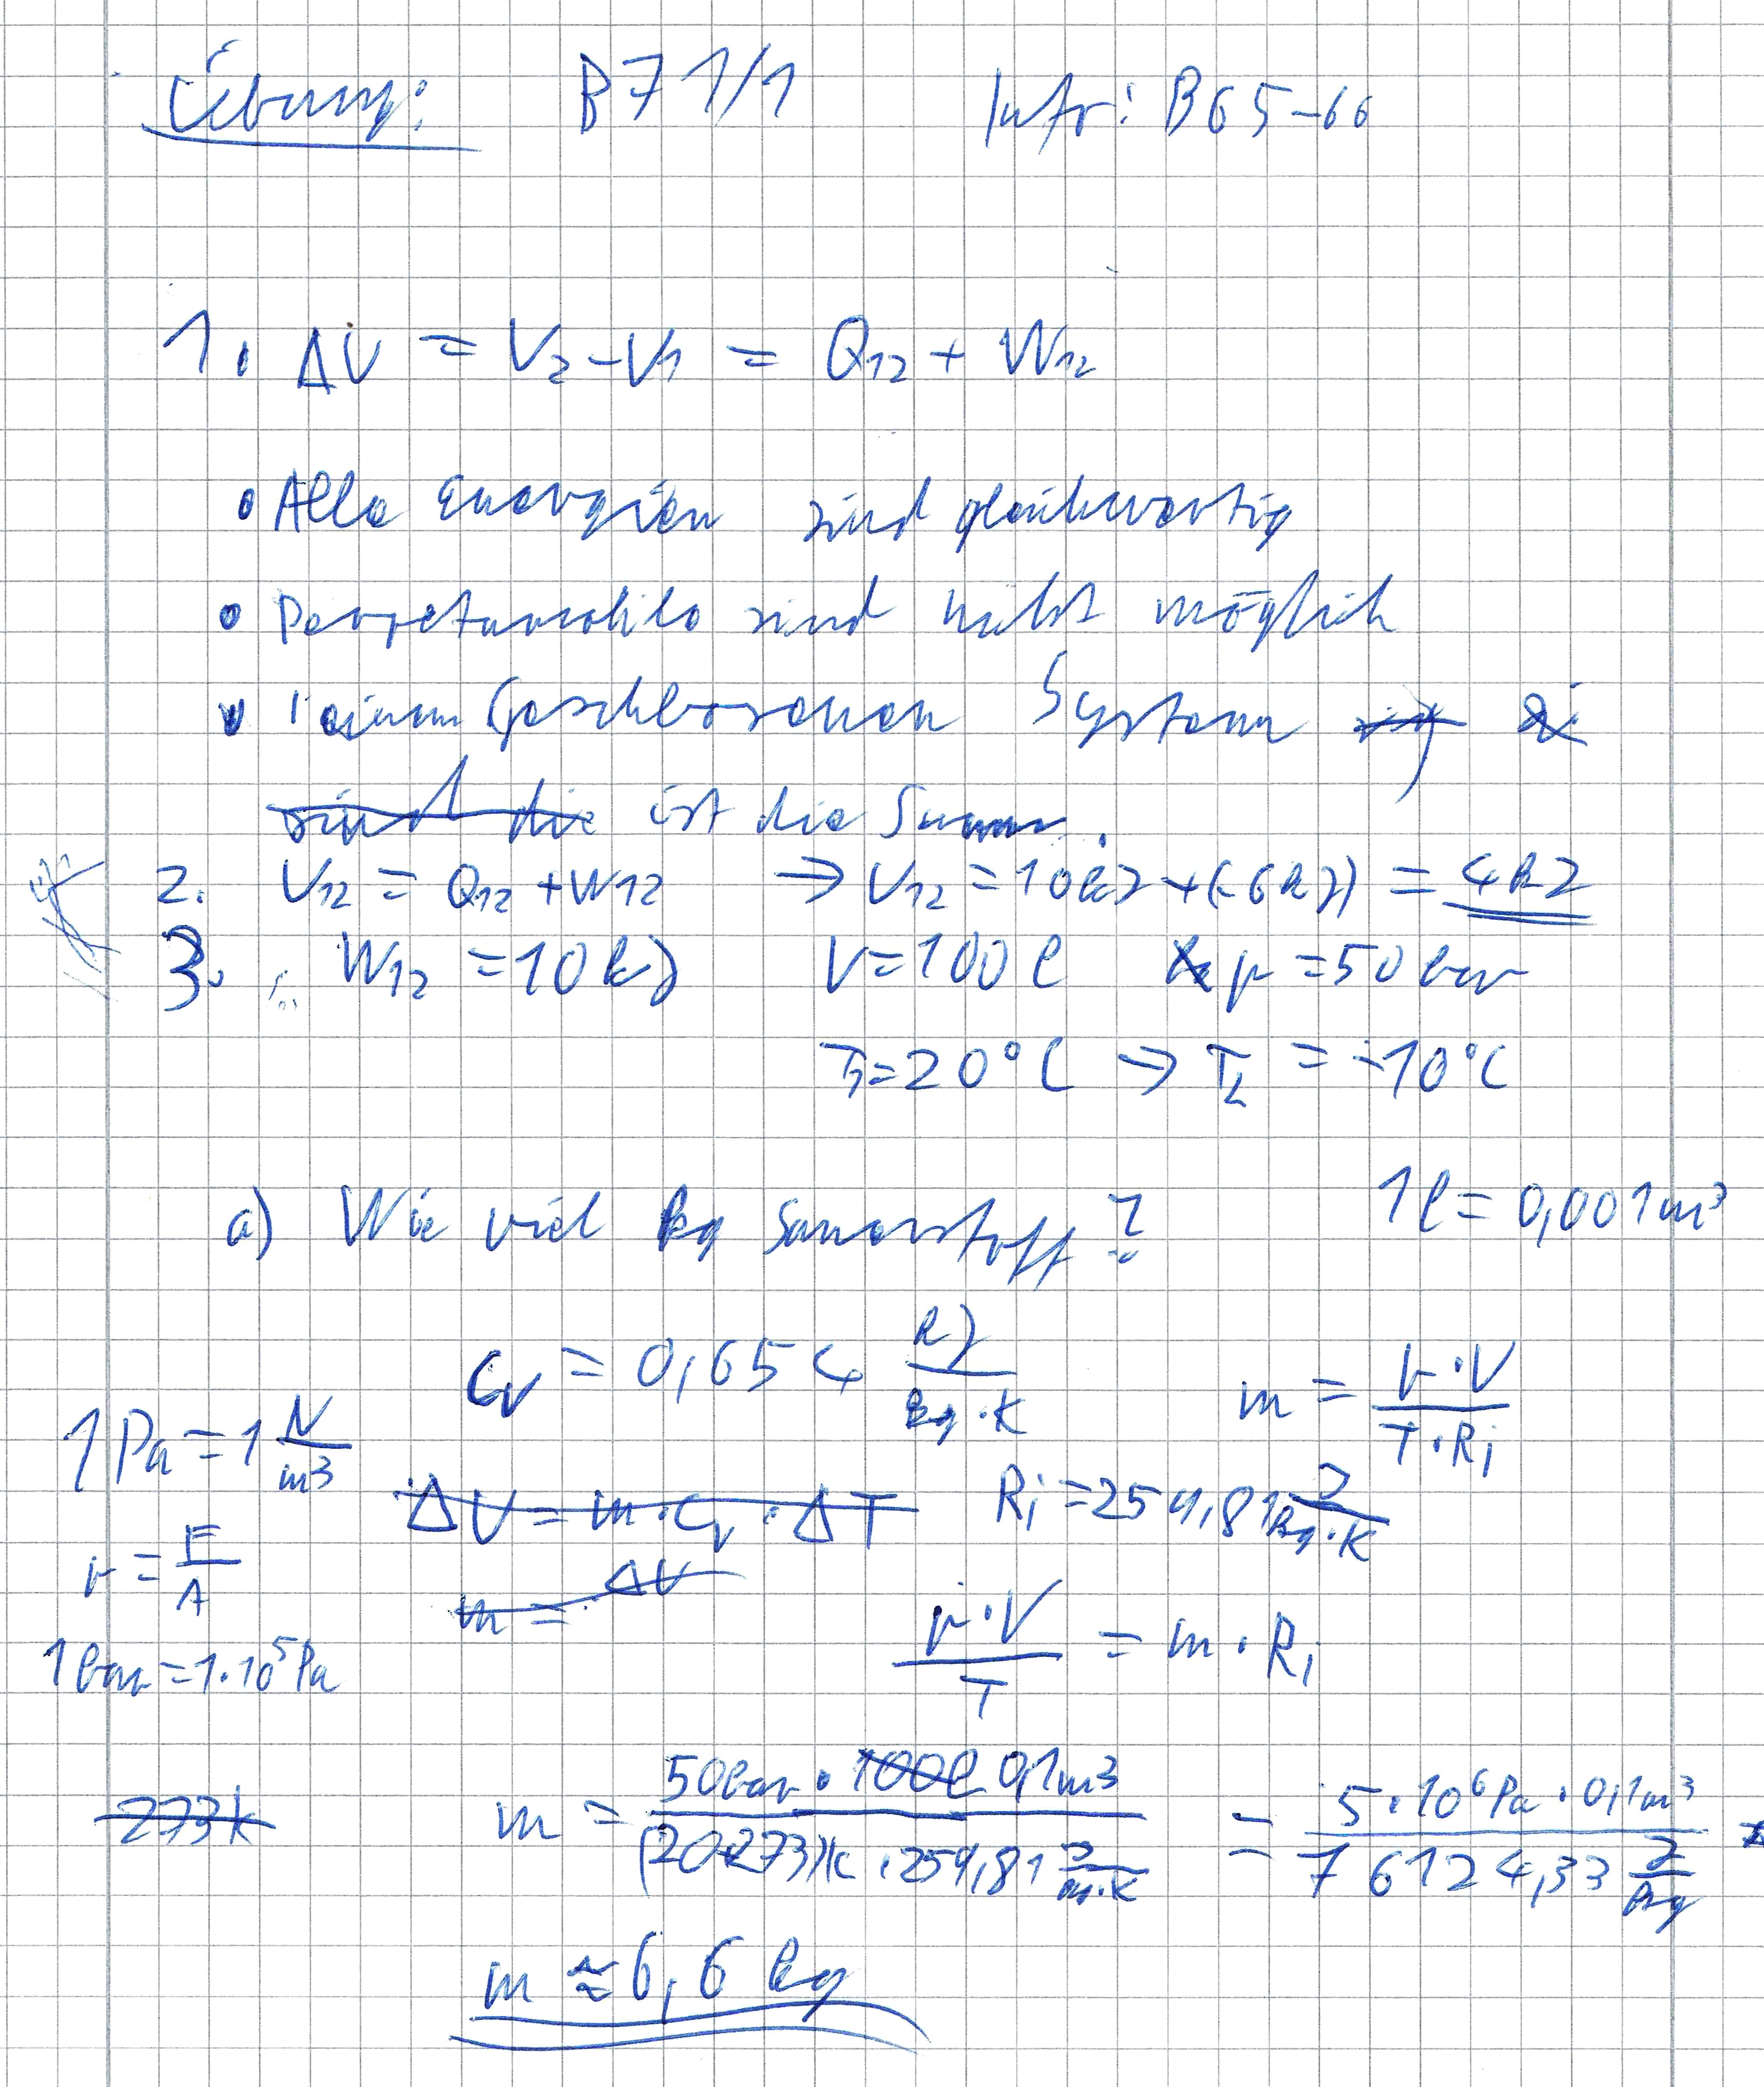 Übung: B71/1 Info: B65-66
1. ΔU = U2 - U1 = Q12 + W12
• Alle Energien sind gleichwertig
• Perpetumobile sind nicht möglich
• I einem Geschlossenen System
sind die ist die Summe.
2. U12 = Q12 + W12 → U12 = 10kJ + (-6kJ) = 4kJ
3. W12 = 10kJ V = 100l p = 50bar
T1 = 20°C → T2 = -10°C
a) Wie viel kg Sauerstoff? 1l = 0,001m³
cv = 0,654 kJ/kg·K m = p·V/T·Ri
1Pa = 1 N/m³
ΔU = m·cv·ΔT Ri = 259,81 J/kg·K
p = F/A m = ΔU
p·V/T = m·Ri
1bar = 1·10⁵Pa
273K m = 50bar·100l 0,1m³/(20+273)K·259,81 J/kg·K = 5·10⁶Pa·0,1m³/76124,33 J/kg
m ≈ 6,6 kg